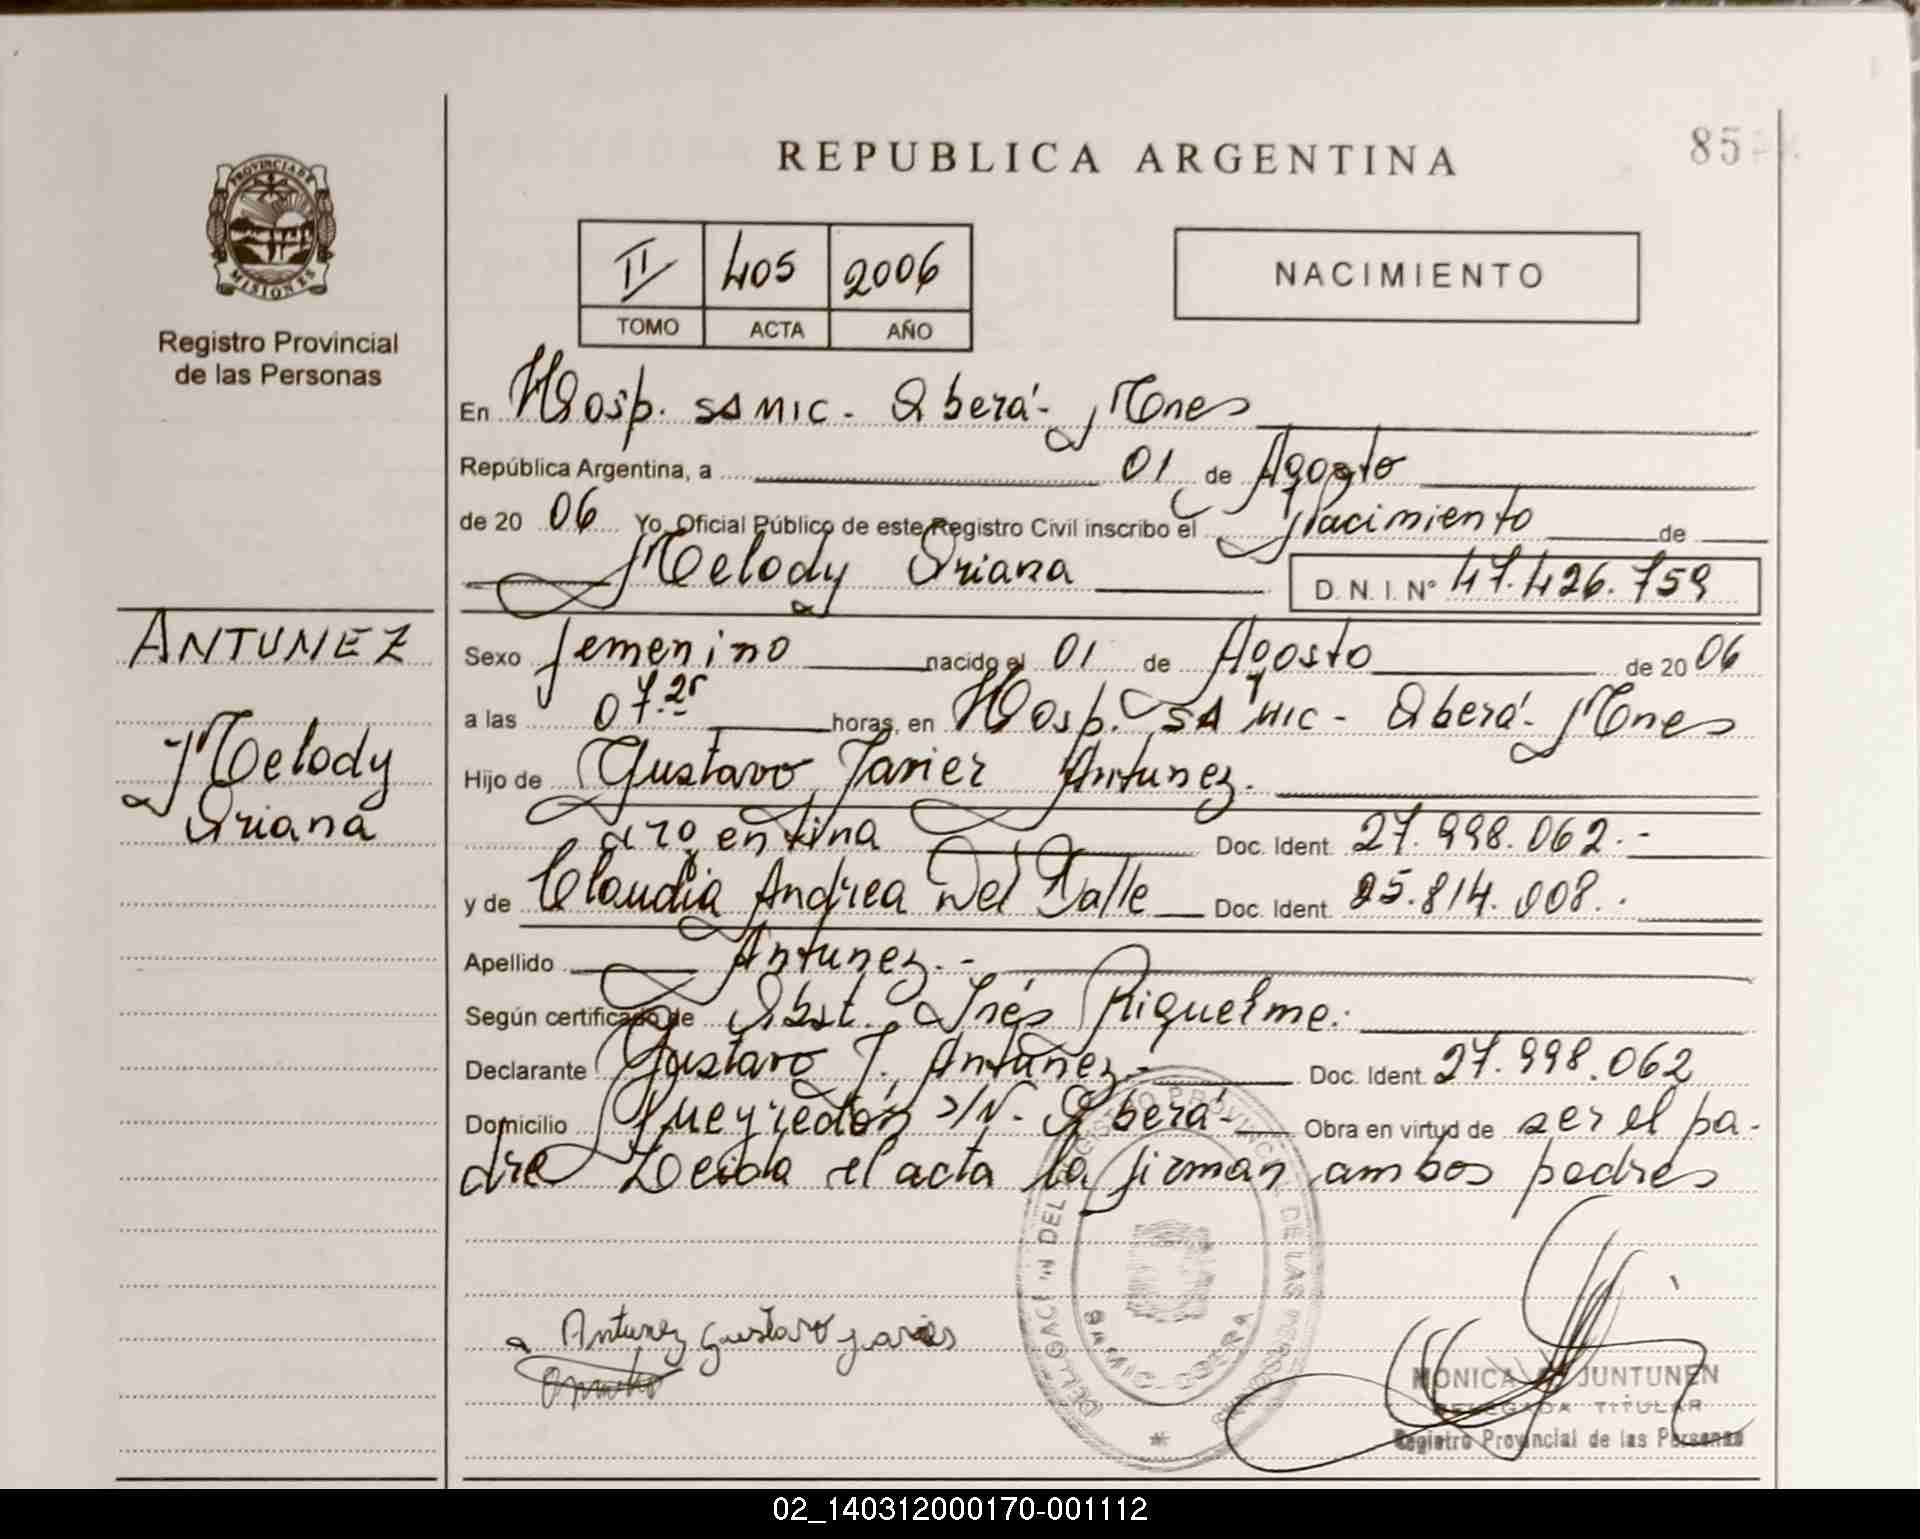 REPUBLICA ARGENTINA
85
PROVINCIA DE MISIONES
Registro Provincial
de las Personas
II 405 2006
TOMO ACTA AÑO
NACIMIENTO
En Hosp. SAMIC - Oberá - Mnes
República Argentina, a 01 de Agosto
de 20 06 Yo, Oficial Público de este Registro Civil inscribo el Nacimiento de
Melody Oriana D.N.I. Nº 47.426.759
ANTUNEZ
Melody
Oriana
Sexo femenino nacido el 01 de Agosto de 20 06
a las 07.25 horas, en Hosp. SAMIC - Oberá - Mnes
Hijo de Gustavo Javier Antunez.
argentina Doc. Ident. 27.998.062.-
y de Claudia Andrea Del Valle Doc. Ident. 25.814.008.-
Apellido Antunez.-
Según certificado de Obst. Inés Riquelme.
Declarante Gustavo J. Antunez.- Doc. Ident. 27.998.062
Domicilio Pueyredón S/N - Oberá - Obra en virtud de ser el pa-
dre Leida el acta la firman ambos padres
DELEGACION DEL REGISTRO PROVINCIAL DE LAS PERSONAS
SAMIC - OBERA
Antunez Gustavo Javier
MONICA JUNTUNEN
DELEGADA TITULAR
Registro Provincial de las Personas
02_140312000170-001112